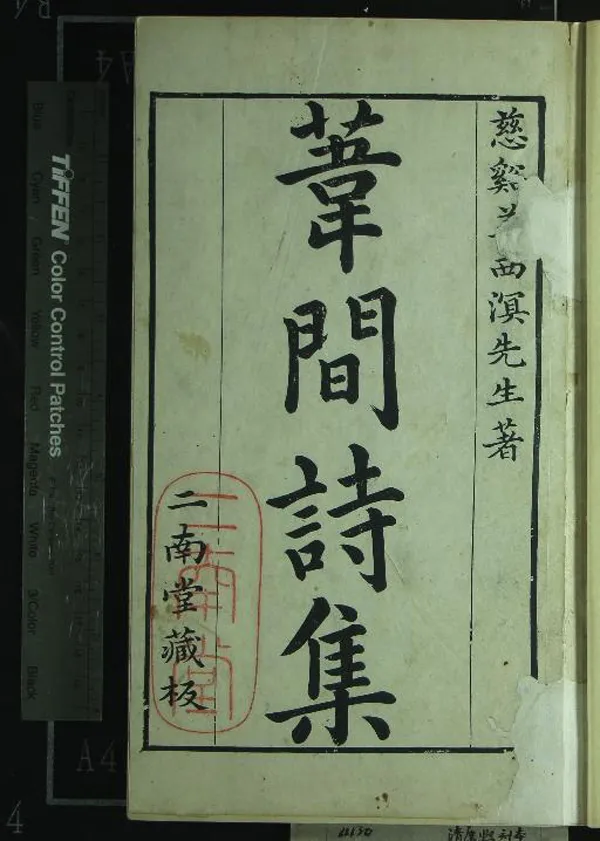 慈谿姜西溟先生著
葦間詩集
二南堂藏板
二南堂
TIFFEN Color Control Patches
Blue Cyan Green Yellow Red Magenta White 3/Color Black
A4
4